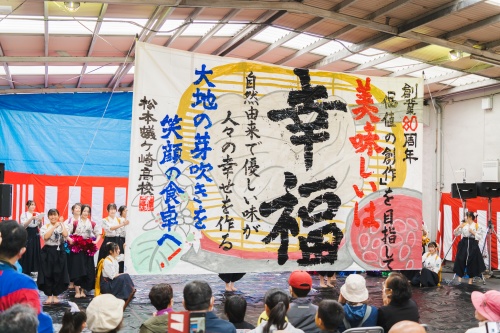 創業80周年
「価値の創作」を目指して
美味しいは
幸福
自然由来で優しい味が
人々の幸せを作る
大地の芽吹きを
笑顔の食卓へ!
松本蟻ヶ崎高校